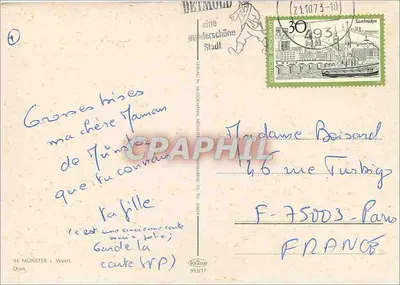 DETMOLD
eine
wunderschöne
Stadt
21.10.73-10
493
30
Saarbrücken
1
Grosses bises
ma chère Maman
de Münster
que tu connais
ta fille
(c'est une ancienne carte
mais jolie;
Garde la
carte SVP)
Madame Boisard
46 rue Turbigo
F-75003-Paris
FRANCE
CPAPHIL
44 MÜNSTER i. Westf.
Dom
993/17